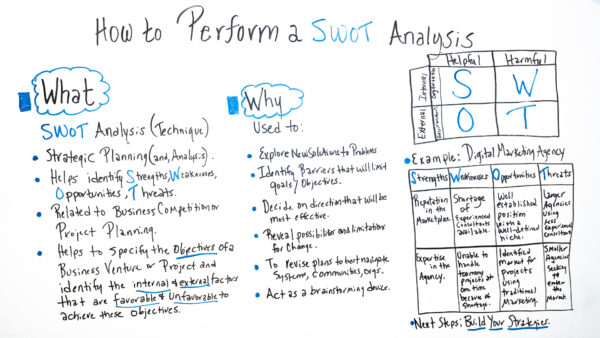 How to Perform a SWOT Analysis
What
SWOT Analysis (Technique)
• Strategic Planning (and, Analysis).
• Helps identify Strengths, Weaknesses,
Opportunities, Threats.
• Related to Business Competition or
Project Planning.
• Helps to specify the Objectives of a
Business Venture or Project and
identify the internal & external factors
that are favorable & unfavorable to
achieve these objectives.
Why
Used to:
• Explore New Solutions to Problems
• Identify Barriers that will limit
goals/Objectives.
• Decide on direction that will be
most effective.
• Reveal possibilities and limitations
for Change.
• To revise plans to best navigate
systems, communities, orgs.
• Act as a brainstorming device.
Helpful
Harmful
Internal
S
W
External
O
T
• Example: Digital Marketing Agency
Strengths
Weaknesses
Opportunities
Threats
Reputation
in the
Marketplace
Shortage
of
Experienced
Consultants
available.
Well
established
position
with a
well-defined
niche.
Larger
Agencies
using
less
experienced
consultants
Expertise
in the
Agency.
Unable to
handle
too many
projects at
one time
because of
shortage.
Identified
market for
projects
using
traditional
Marketing
Smaller
Agencies
Seeking
to enter
the
Market
• Next Steps: Build Your Strategies.